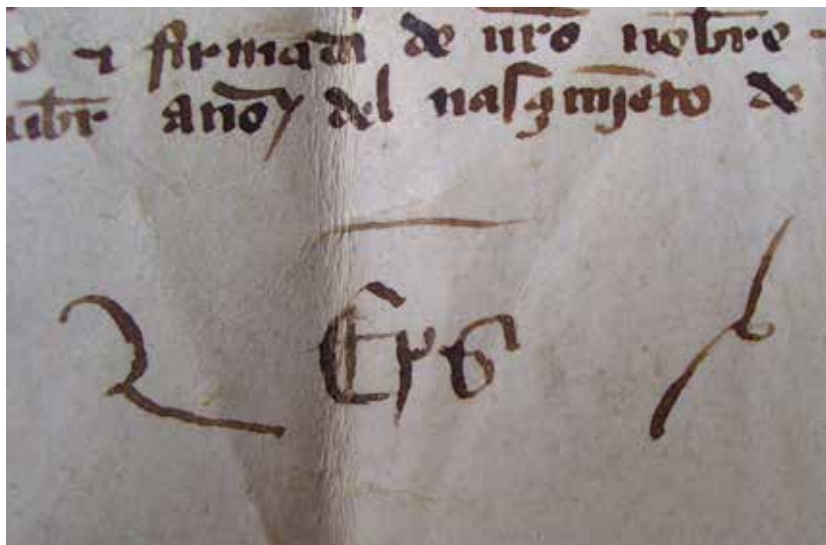 ⁊ firmada de nr̄o nobr̄e
ubr̄ año del nasçimjēto de
Ep̄s